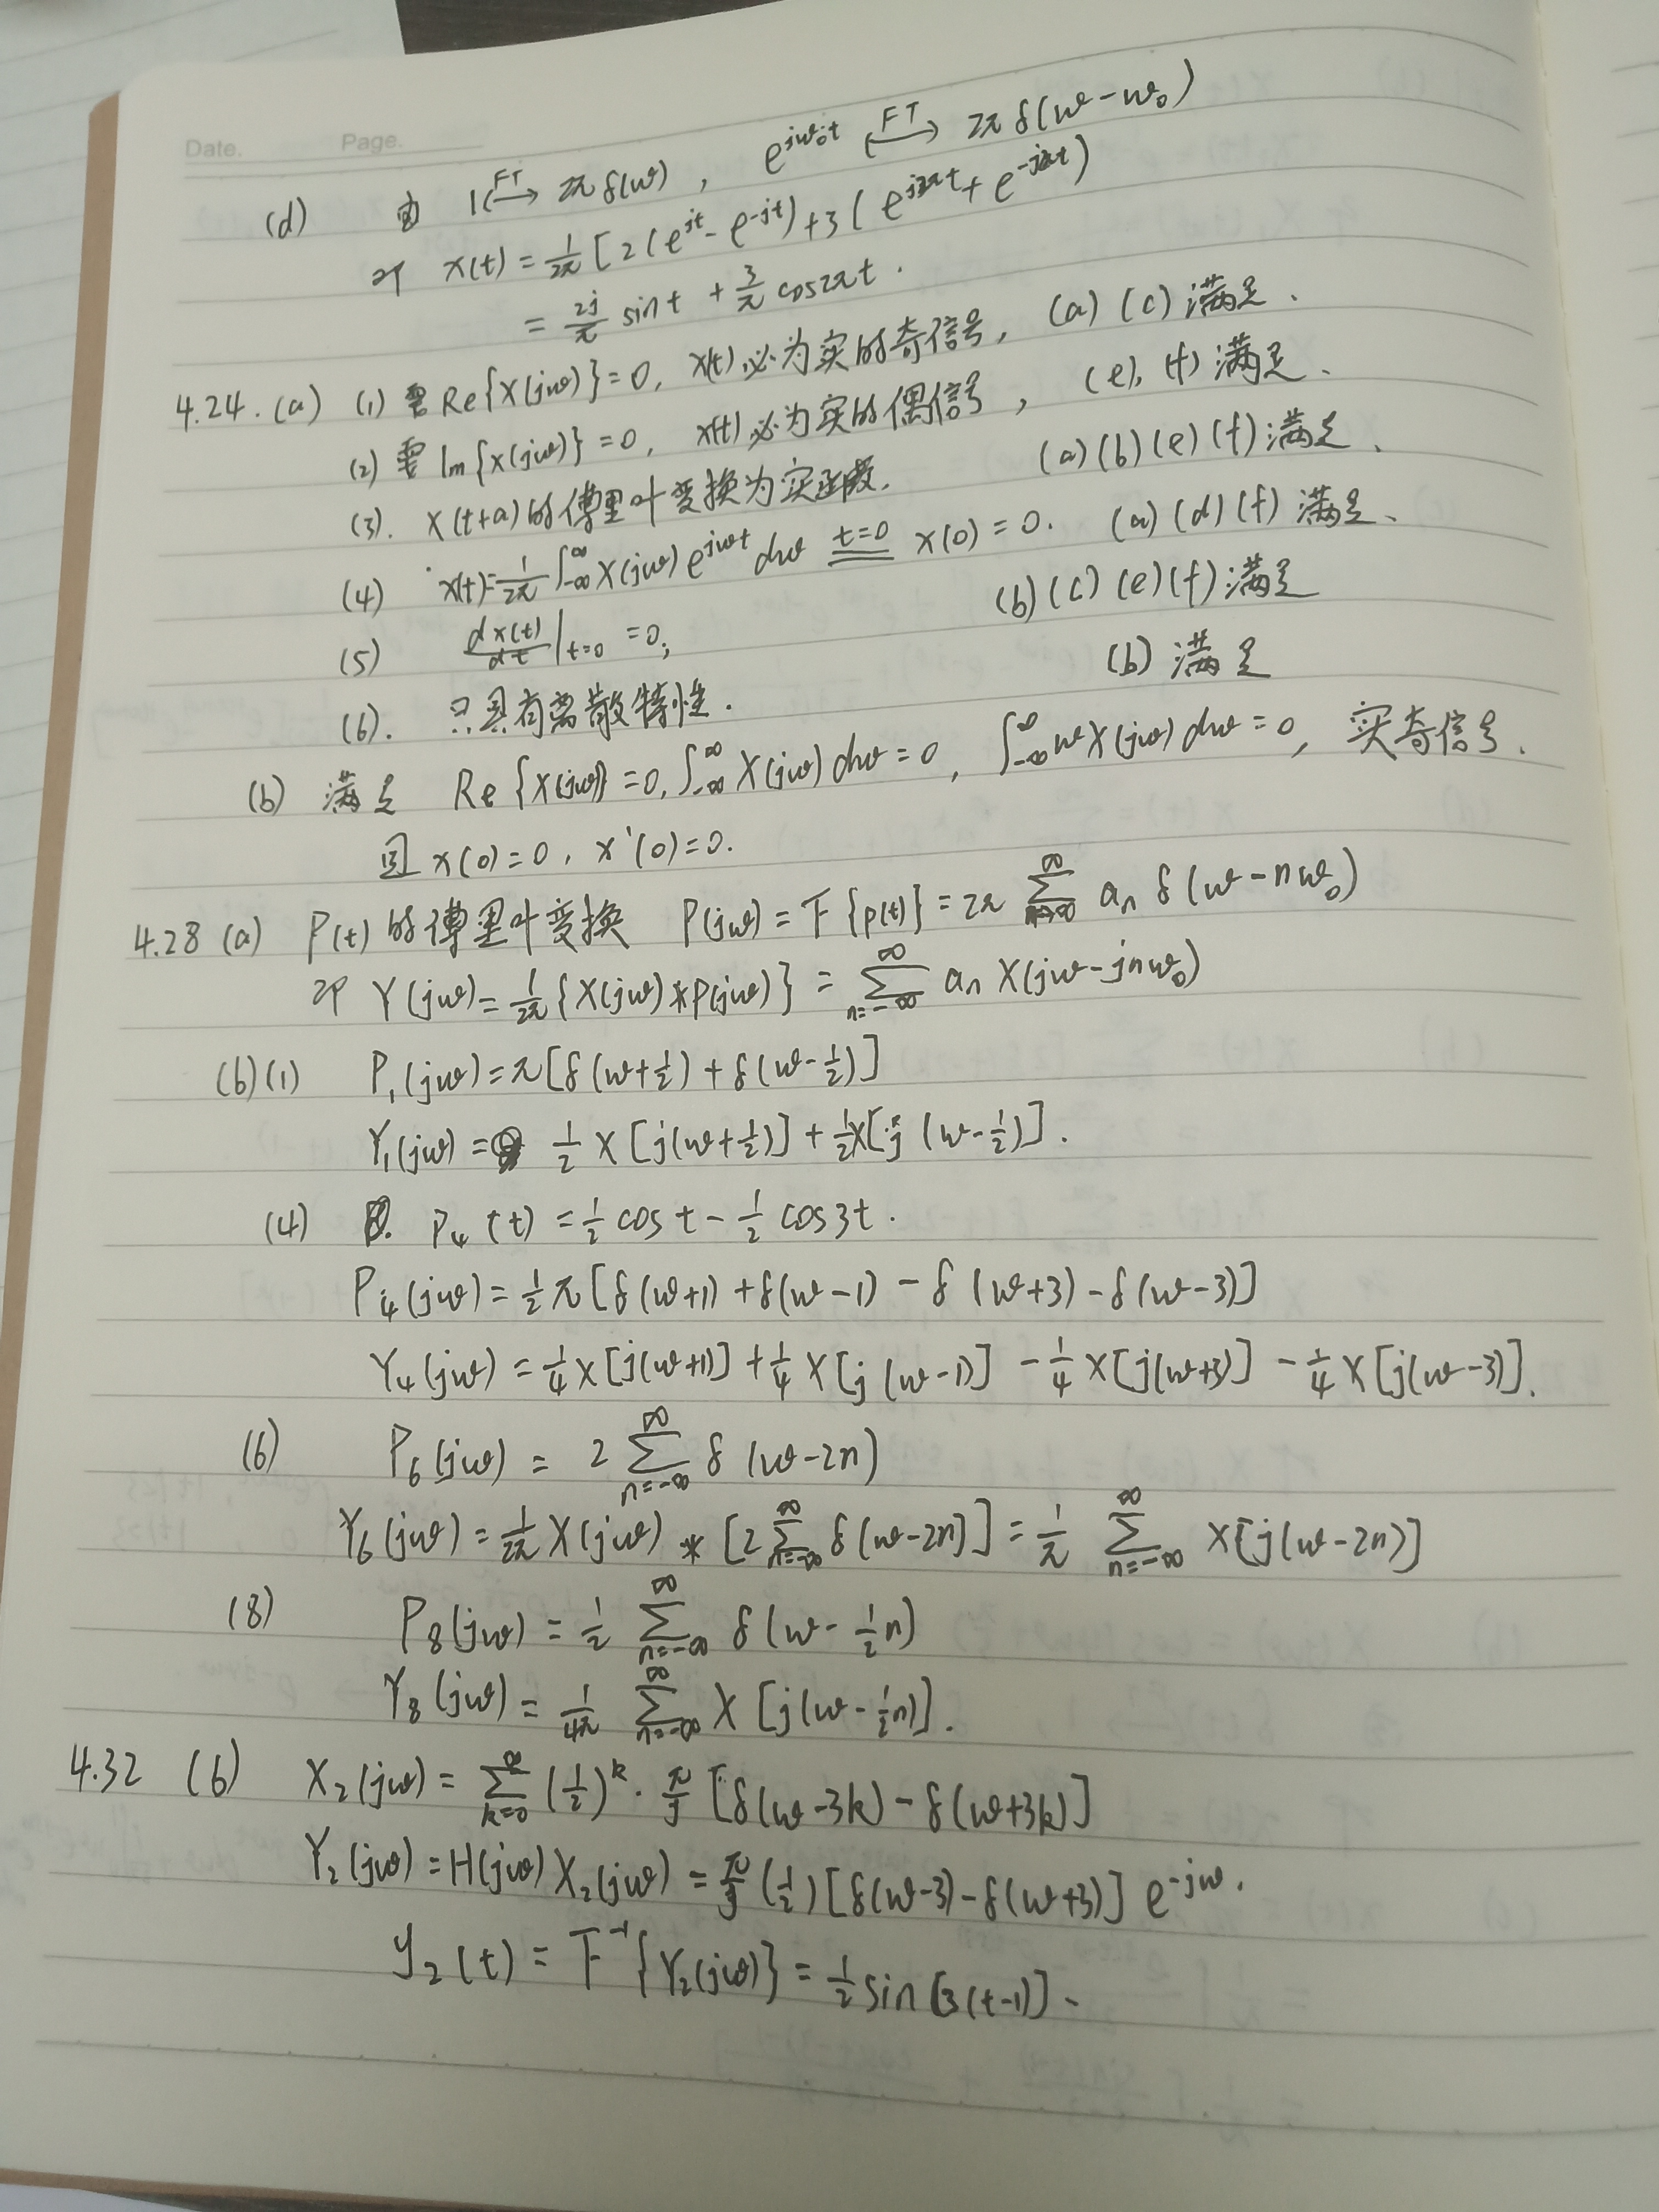 Date. Page.
(d) 由 1 ←FT→ 2πδ(ω), e^{jω₀t} ←FT→ 2πδ(ω-ω₀)
x(t) = 1/2π [2(e^{jt} - e^{-jt}) + 3(e^{j2πt} + e^{-j2πt})
= 2j/π sint + 3/π cos2πt.
4.24. (a) (1) 要 Re{X(jω)}=0, x(t)必为实的奇信号, (a) (c) 满足.
(2) 要 Im{X(jω)}=0, x(t)必为实的偶信号, (e), (f) 满足.
(3). X(t+a)的傅里叶变换为实函数. (a)(b)(e)(f)满足.
(4) x(t)=1/2π ∫_{-∞}^{∞} X(jω)e^{jωt}dω \overset{t=0}{=} x(0)=0. (a)(d)(f)满足.
(5) dx(t)/dt |_{t=0} =0; (b)(c)(e)(f)满足
(6). 只具有离散特性. (b)满足
(b) 满足 Re{X(jω)}=0, ∫_{-∞}^{∞} X(jω)dω=0, ∫_{-∞}^{∞} ωX(jω)dω=0, 实奇信号.
且 x(0)=0, x'(0)=0.
4.28 (a) P(t)的傅里叶变换 P(jω)=F{p(t)}=2π ∑_{n=-∞}^{∞} a_n δ(ω-nω₀)
Y(jω)=1/2π {X(jω)*P(jω)} = ∑_{n=-∞}^{∞} a_n X(jω-jnω₀)
(b)(1) P₁(jω)=π[δ(ω+1/2)+δ(ω-1/2)]
Y₁(jω)= 1/2 X[j(ω+1/2)] + 1/2 X[j(ω-1/2)].
(4) P₄(t)=1/2 cost - 1/2 cos3t.
P₄(jω)=1/2 π[δ(ω+1)+δ(ω-1)-δ(ω+3)-δ(ω-3)]
Y₄(jω)=1/4 X[j(ω+1)] + 1/4 X[j(ω-1)] - 1/4 X[j(ω+3)] - 1/4 X[j(ω-3)].
(6) P₆(jω) = 2 ∑_{n=-∞}^{∞} δ(ω-2n)
Y₆(jω)=1/2π X(jω) * [2 ∑_{n=-∞}^{∞} δ(ω-2n)] = 1/π ∑_{n=-∞}^{∞} X[j(ω-2n)]
(8) P₈(jω) = 1/2 ∑_{n=-∞}^{∞} δ(ω-1/2 n)
Y₈(jω) = 1/4π ∑_{n=-∞}^{∞} X[j(ω-1/2 n)].
4.32 (b) X₂(jω) = ∑_{k=0}^{∞} (1/2)^k · π/j [δ(ω-3k)-δ(ω+3k)]
Y₂(jω)=H(jω)X₂(jω)=π/j (1/2)[δ(ω-3)-δ(ω+3)]e^{-jω}.
y₂(t) = F^{-1}{Y₂(jω)} = 1/2 sin[3(t-1)].